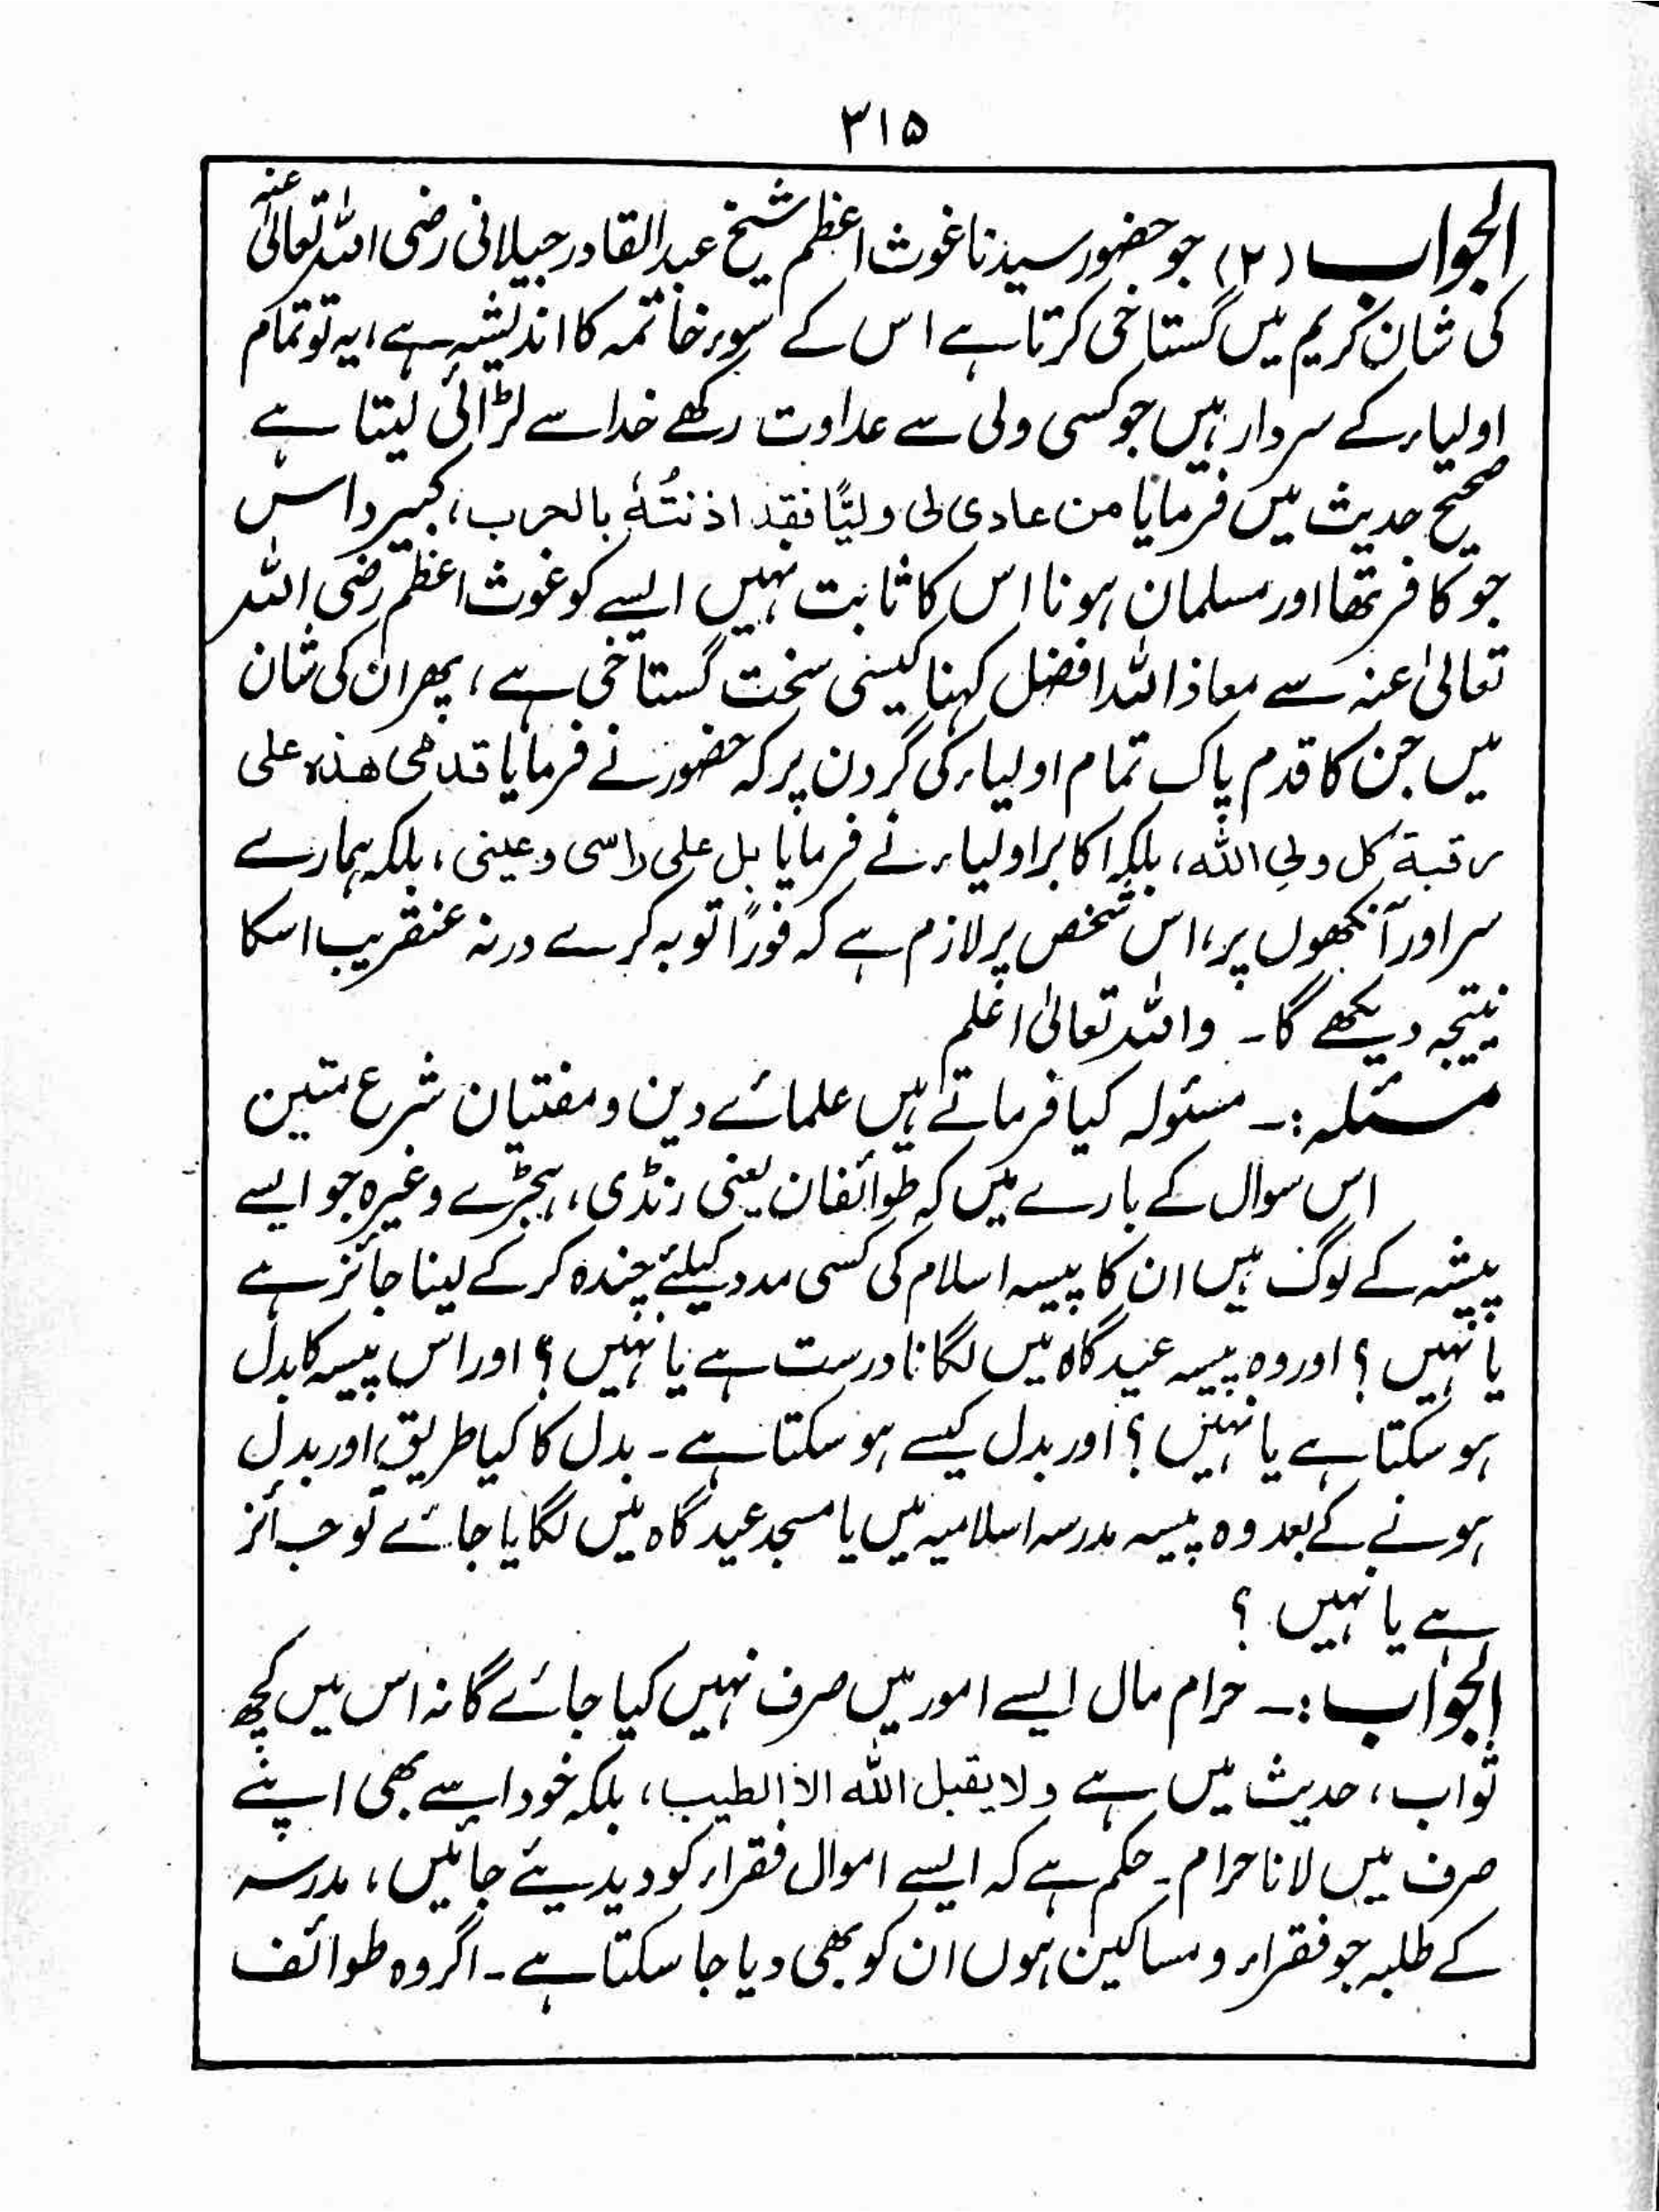 ۳۱۵
الجواب (۲) جو حضور سیدنا غوث اعظم شیخ عبدالقادر جیلانی رضی اللہ تعالیٰ عنہ
کی شان کریم میں گستاخی کرتا ہے اس کے سوء خاتمہ کا اندیشہ ہے، یہ تو تمام
اولیاء کے سردار ہیں جو کسی ولی سے عداوت رکھے خدا سے لڑائی لیتا ہے
صحیح حدیث میں فرمایا من عادی لی ولیًّا فقد اذنتُہٗ بالحرب، کبیر داس
جو کافر تھا اور مسلمان ہونا اس کا ثابت نہیں ایسے کو غوث اعظم رضی اللہ
تعالیٰ عنہ سے معاذ اللہ افضل کہنا کیسی سخت گستاخی ہے، پھر ان کی شان
میں جن کا قدم پاک تمام اولیاء کی گردن پر کہ حضور نے فرمایا قدمی ھذہ علی
رقبۃ کل ولی اللہ، بلکہ اکابر اولیاء نے فرمایا بل علی راسی وعینی، بلکہ ہمارے
سر اور آنکھوں پر، اس شخص پر لازم ہے کہ فورًا توبہ کرے ورنہ عنقریب اسکا
نتیجہ دیکھے گا۔ واللہ تعالیٰ اعلم
مسئلہ :۔ مسئولہ کیا فرماتے ہیں علمائے دین و مفتیان شرع متین
اس سوال کے بارے میں کہ طوائفان یعنی رنڈی، ہجڑے وغیرہ جو ایسے
پیشہ کے لوگ ہیں ان کا پیسہ اسلام کی کسی مدد کیلئے چندہ کر کے لینا جائز ہے
یا نہیں؟ اور وہ پیسہ عیدگاہ میں لگانا درست ہے یا نہیں؟ اور اس پیسہ کا بدل
ہو سکتا ہے یا نہیں؟ اور بدل کیسے ہو سکتا ہے۔ بدل کا کیا طریق، اور بدل
ہونے کے بعد وہ پیسہ مدرسہ اسلامیہ میں یا مسجد عیدگاہ میں لگایا جائے تو جائز
ہے یا نہیں؟
الجواب :۔ حرام مال ایسے امور میں صرف نہیں کیا جائے گا نہ اس میں کچھ
ثواب، حدیث میں ہے ولا یقبل اللہ الا الطیب، بلکہ خود اسے بھی اپنے
صرف میں لانا حرام۔ حکم ہے کہ ایسے اموال فقراء کو دیدیئے جائیں، مدرسہ
کے طلبہ جو فقراء و مساکین ہوں ان کو بھی دیا جا سکتا ہے۔ اگر وہ طوائف